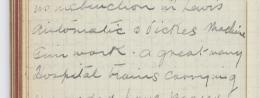 no instruction in Lewis
Automatic & Vickers Machine
Gun work. a great many
Hospital trains carrying